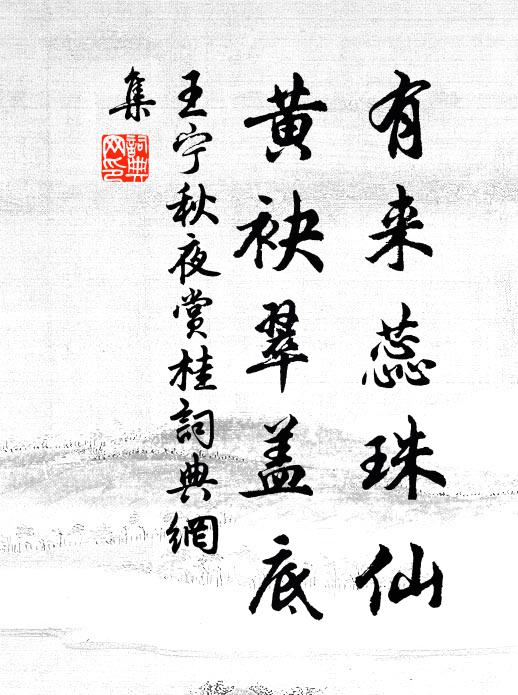 有来蕊珠仙
黄袂翠盖底
王宁秋夜赏桂詞典網
集
詞典網印